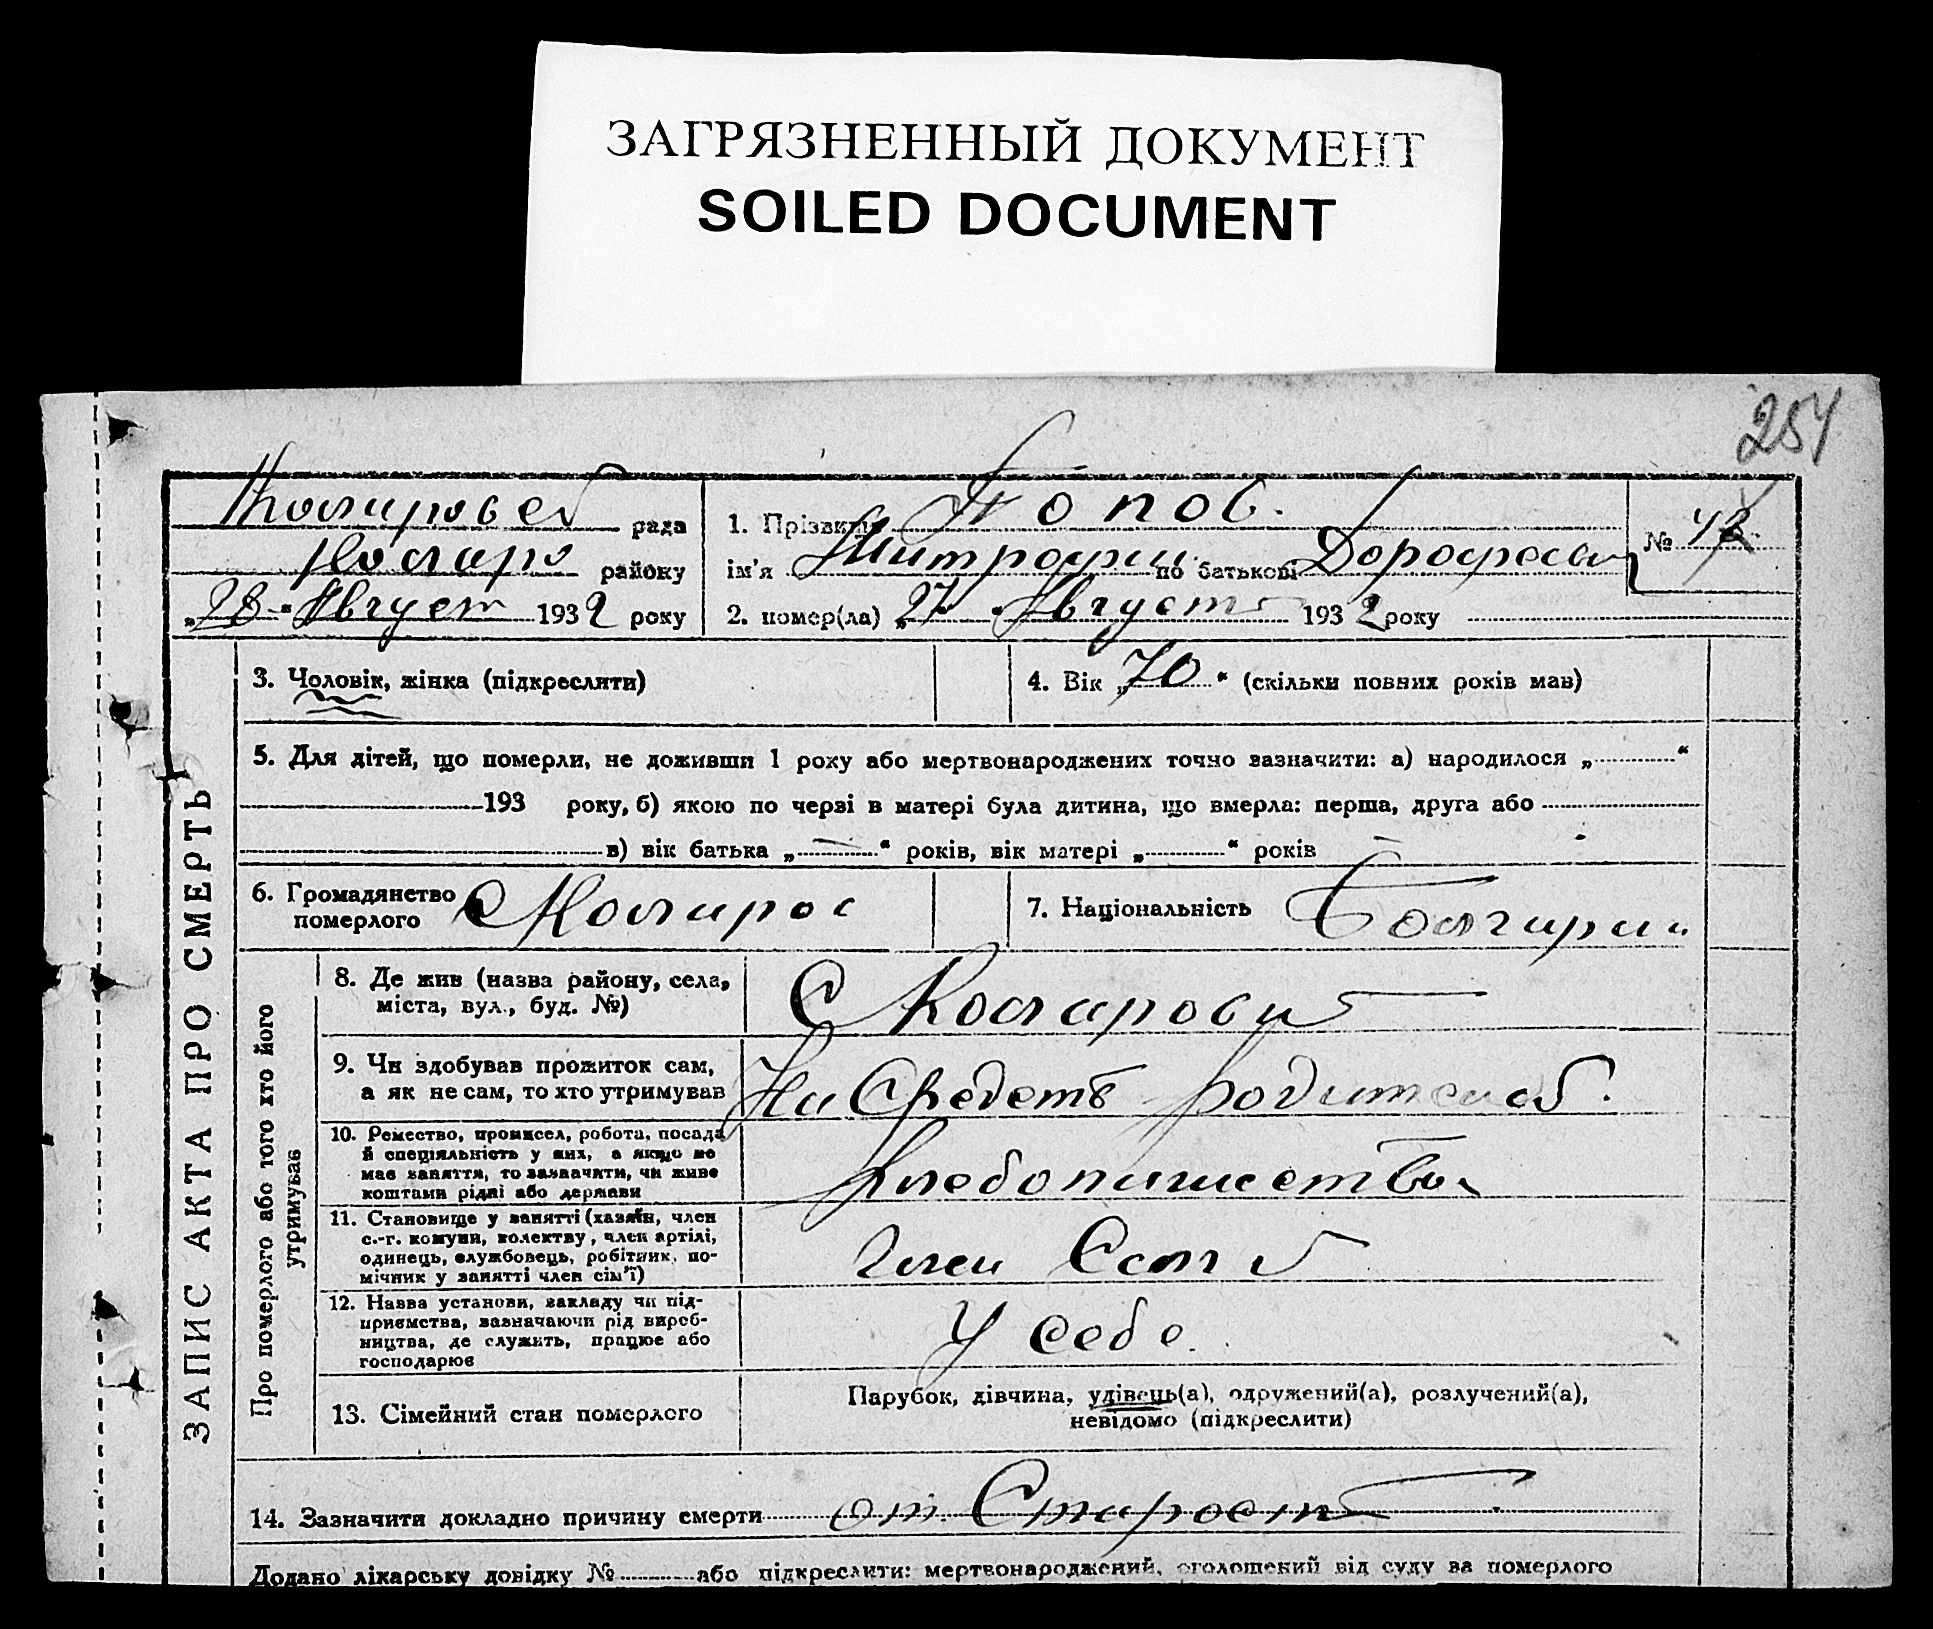 ЗАГРЯЗНЕННЫЙ ДОКУМЕНТ
SOILED DOCUMENT
254
рада
району
„28“ Август 1932 року
1. Прізвище Попов.
ім'я Митрофан по батькові Дорофеев
2. помер(ла) „27“ Август 1932 року
№ 4
3. Чоловік, жінка (підкреслити)
4. Вік „70“ (скільки повних років мав)
5. Для дітей, що померли, не доживши 1 року або мертвонароджених точно зазначити: а) народилося „ “
193 року, б) якою по черві в матері була дитина, що вмерла: перша, друга або
в) вік батька „ “ років, вік матері „ “ років
6. Громадянство
померлого
7. Національність Болгарин
8. Де жив (назва району, села,
міста, вул., буд. №)
С Коларовка
9. Чи здобував прожиток сам,
а як не сам, то хто утримував
На Средств родителей.
10. Ремество, промисел, робота, посада
й спеціяльність у них, а якщо не
має заняття, то зазначити, чи живе
коштами рідні або держави
Хлебопашество
11. Становище у занятті (хазяїн, член
с.-г. комуни, колектву, член артілі,
одинець, службовець, робітник, по-
мічник у занятті член сім'ї)
Член
12. Назва установи, закладу чи під-
приємства, зазначаючи рід вироб-
ництва, де служить, працює або
господарює
У себе
13. Сімейний стан померлого
Парубок, дівчина, удівець(а), одружений(а), розлучений(а),
невідомо (підкреслити)
14. Зазначити докладно причину смерти от Старости
Додано лікарську довідку № або підкреслити: мертвонароджений, оголошений від суду за померлого
ЗАПИС АКТА ПРО СМЕРТЬ
Про померлого або того хто його
утримував